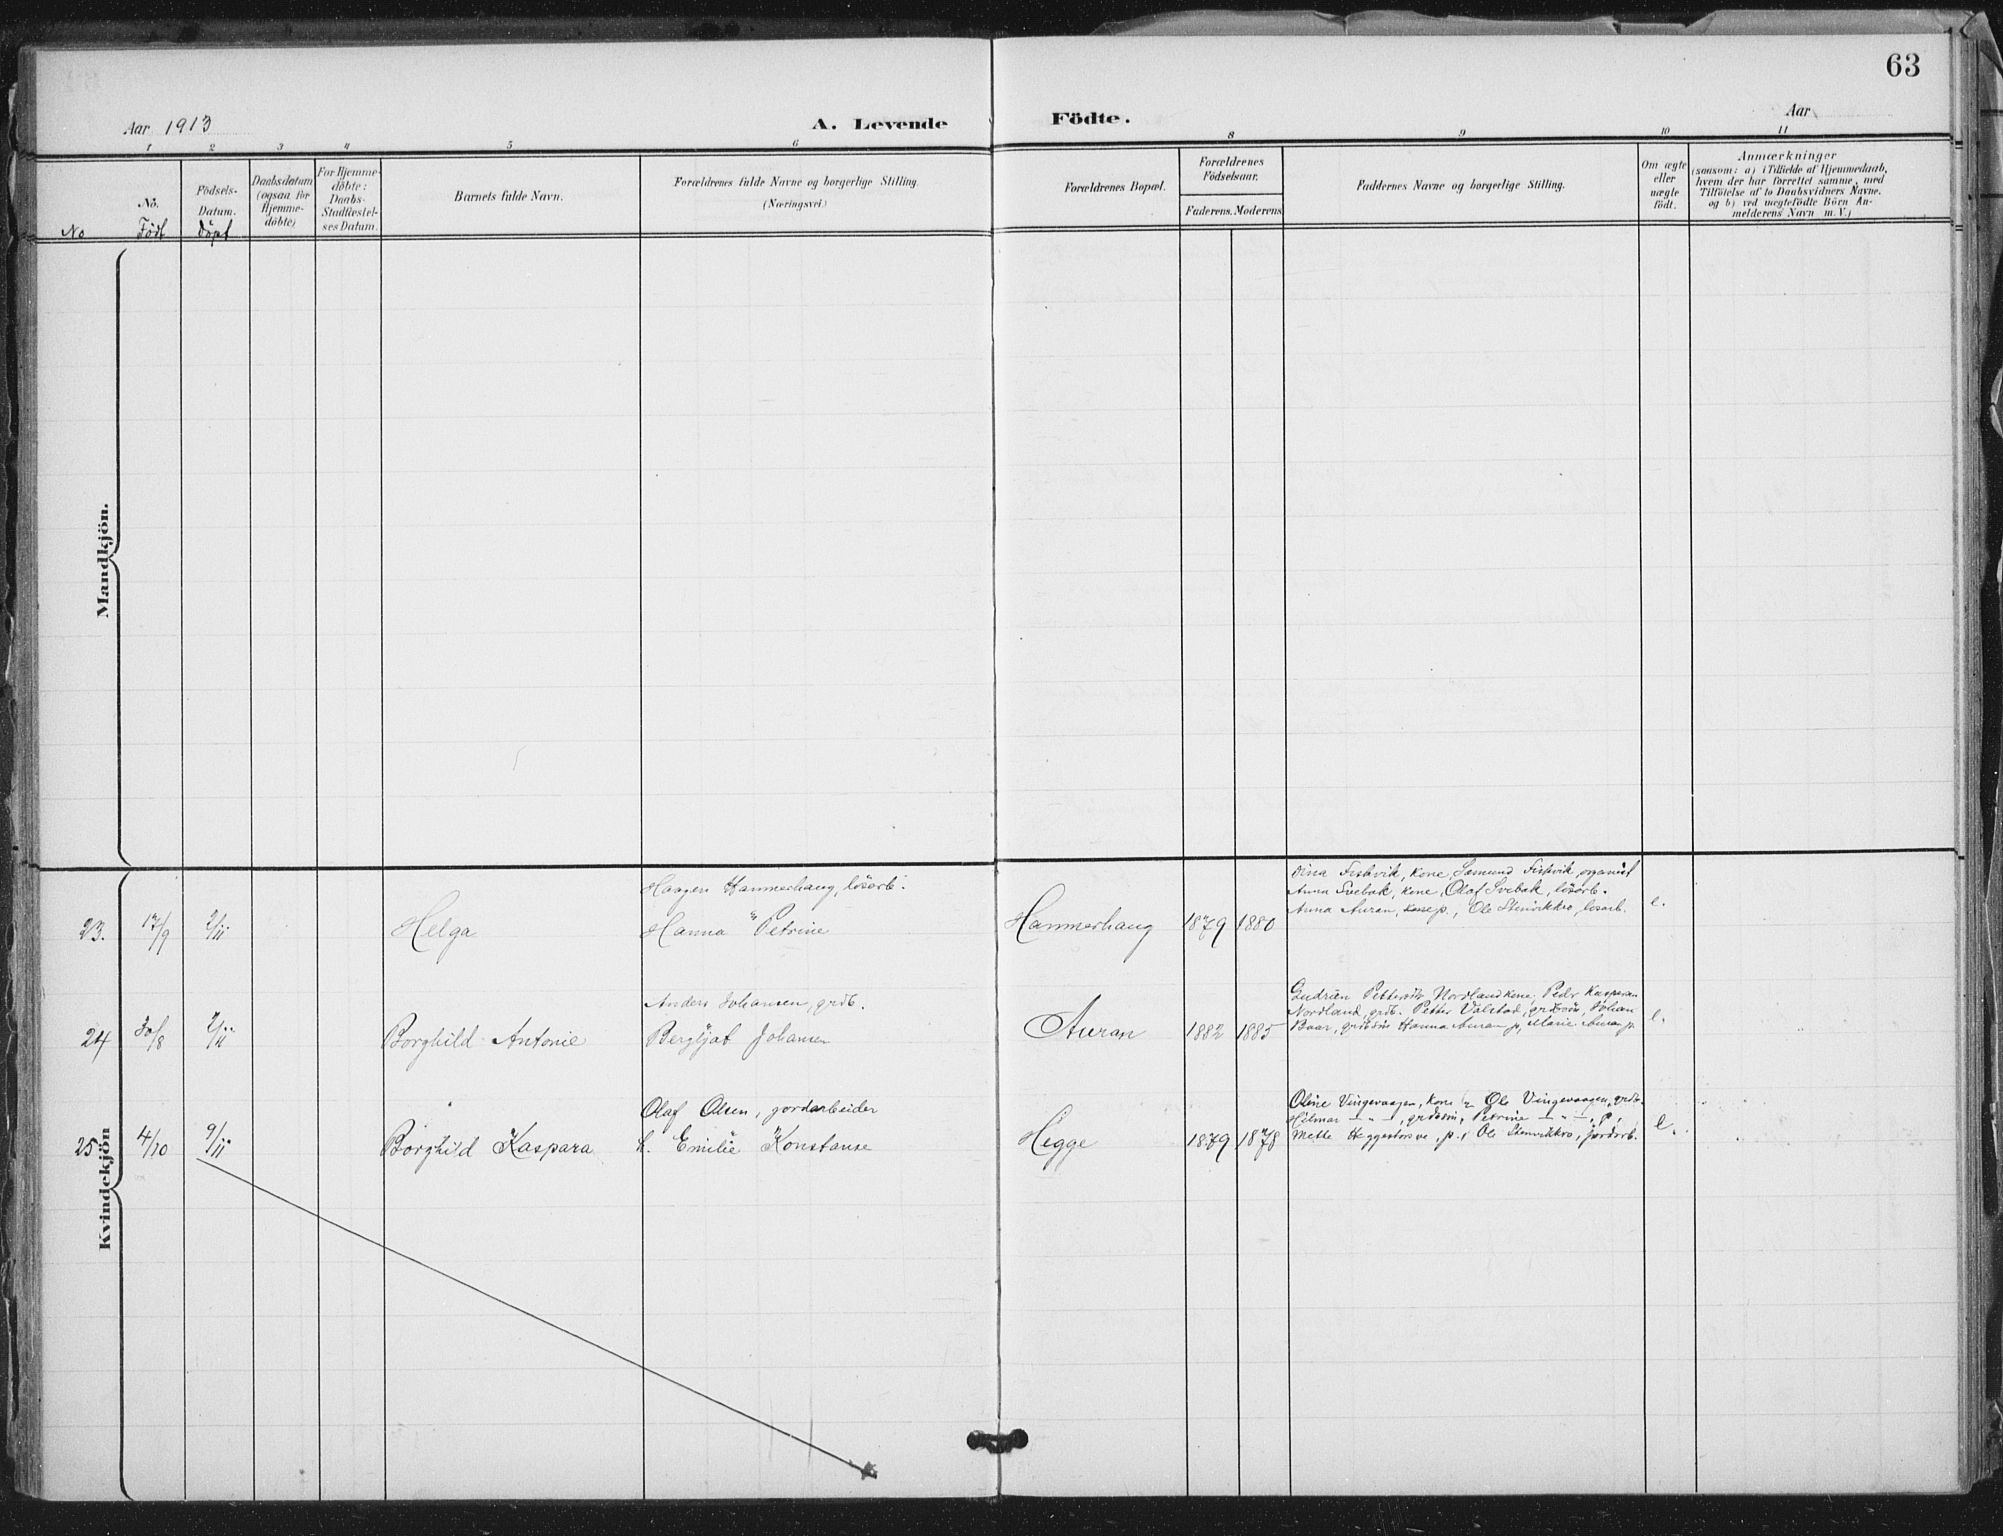 63
Aar 1913
A. Levende Födte.
Aar
1 2 3 4 5 6 8 9 10 11
No
No. Född
Födsels-Datum. döpt
Daabsdatum (ogsaa for Hjemme-døbte)
For Hjemme-döbte: Daabs-Stadfestel-ses Datum.
Barnets fulde Navn.
Forældrenes fulde Navne og borgerlige Stilling. (Næringsvei.)
Forældrenes Bopæl.
Forældrenes Födselsaar.
Faderens. Moderens
Faddernes Navne og borgerlige Stilling.
Om ægte eller uægte födt.
Anmærkninger
(saasom: a) i Tilfælde af Hjemmedaab,
hvem der har forrettet samme, med
Tilföielse af to Daabsvidners Navne.
og b) ved uægtefödte Börn An-
melderens Navn m. V.)
Mandkjön.
Kvindekjön
23. 17/9 2/11 Helga
Haagen Hammerhaug, lösarb.
Hanna Petrine
Hammerhaug 1879 1880
Fiskvik, kone, Fiskvik organist
Anna Svebak, kone, Olaf Svebak, lösarb.
Anna Auran, p., Ole Stenvikkro, losarb.
e.
24 30/8 2/11 Borghild Antonie
Anders Johansen, grdb.
Bergljot Johansen
Auran 1882 1885
Nordland kone, Pedr Kasperan
Nordland, grdb. Petter Valstad, Johan
Hanna Auran p, Marie Auran p.
e.
25 4/10 9/11 Borghild Kaspara
Olaf Olsen, jordarbeider
h. Emilie Konstanse
Hegge 1879 1878
Oline Vingevaagen, kone Ole Vingevaagen, grdb.
Hilmar — " —, grdsön, Petrine — " —, P,
Mette p. Ole Stenvikkro, jordarb.
e.